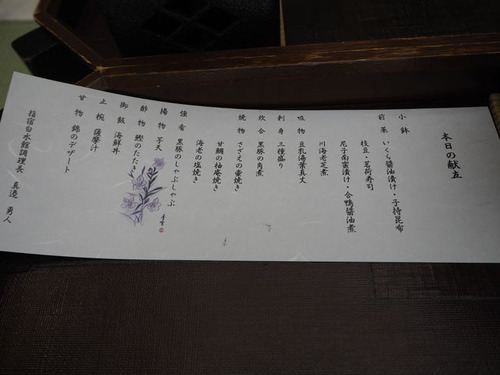 本日の献立
小鉢 いくら醤油漬け・子持昆布
前菜 枝豆・茗荷寿司
尼子南蛮漬け・合鴨醤油煮
川海老芝煮
吸物 豆乳湯葉真丈
刺身 三種盛り
炊合 黒豚の角煮
焼物 さざえの壷焼き
甘鯛の柚庵焼き
海老の塩焼き
強肴 黒豚のしゃぶしゃぶ
揚物 芋天
酢物 鰹のたたき
御飯 海鮮丼
止椀 薩摩汁
甘物 錦のデザート
指宿白水館調理長 真邊 勇人